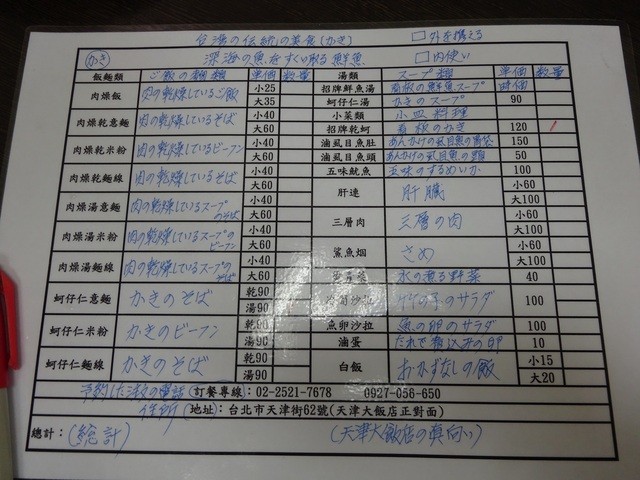 台湾の伝統の美食(かき) □外を携える
(かき) 深海の魚をすくい取る鮮魚 □内使い
飯麵類 ご飯の麺類 單價 數量 湯類 スープ類 單價 數量
肉燥飯 肉の乾燥しているご飯 小25 大35 招牌鮮魚湯 看板の鮮魚スープ 時価
蚵仔仁湯 かきのスープ 90
肉燥乾意麵 肉の乾燥しているそば 小40 大60 小菜類 小皿料理
招牌乾蚵 看板のかき 120
肉燥乾米粉 肉の乾燥しているビーフン 小40 大60 滷虱目魚肚 150
滷虱目魚頭 あんかけの虱目魚の頭 50
肉燥乾麵線 肉の乾燥しているそば 小40 大60 五味魷魚 五味のするめいか 100
肝連 肝臓 小60 大100
肉燥湯意麵 肉の乾燥しているスープのそば 小40 大60 三層肉 三層の肉 小60 大100
肉燥湯米粉 肉の乾燥しているスープのビーフン 小40 大60 鯊魚烟 さめ 小60 大100
肉燥湯麵線 肉の乾燥しているスープのそば 小40 大60 水の煮る野菜 40
蚵仔仁意麵 かきのそば 乾90 湯90 沙拉 竹の子のサラダ 100
蚵仔仁米粉 かきのビーフン 乾90 湯90 魚卵沙拉 魚の卵のサラダ 100
滷蛋 たれで煮込みの卵 10
蚵仔仁麵線 かきのそば 乾90 湯90 白飯 おかずなしの飯 小15 大20
予約した注文の電話 (訂餐專線:02-2521-7678 0927-056-650
住所 (地址:台北市天津街62號(天津大飯店正對面)
總計:(総計) (天津大飯店の真向い)